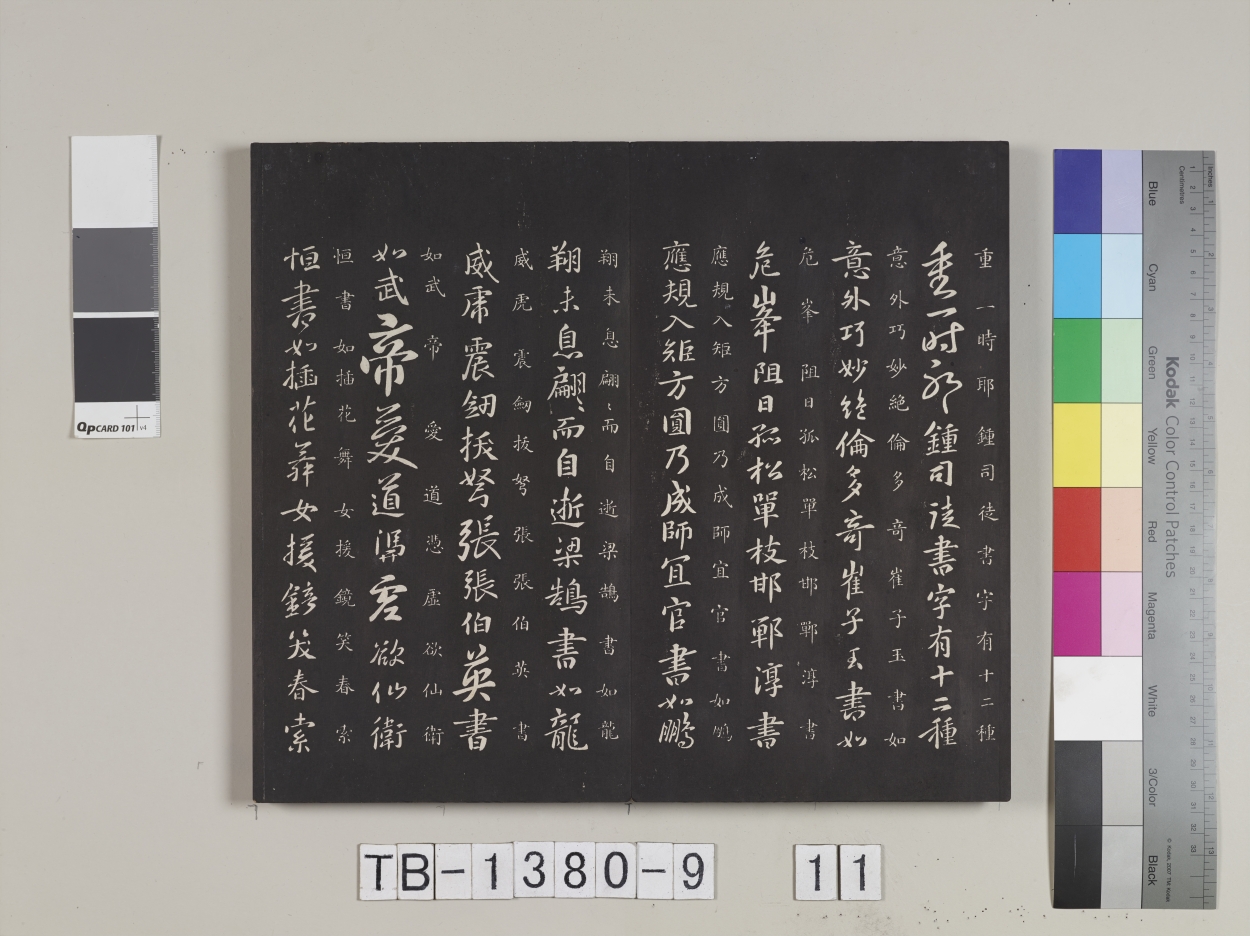 重一時耶鍾司徒書字有十二種
重一时耶鍾司徒書字有十二種
意外巧妙絕倫多奇崔子玉書如
意外巧妙絕倫多奇崔子玉書如
危峯阻日孤松單枝邯鄲淳書
危峯阻日孤松單枝邯鄲淳書
應規入矩方圓乃成師宜官書如鵬
應規入矩方圓乃成師宜官書如鵬
翔未息翩〻而自逝梁鵠書如龍
翔未息翩〻而自逝梁鵠書如龍
威虎震劒拔弩張張伯英書
威虎震劒拔弩張張伯英書
如武帝愛道憑虛欲仙衛
如武帝愛道馮虛欲仙衛
恒書如插花舞女援鏡笑春索
恒書如插花舞女援鏡笑春索
QpCARD 101 v4
TB-1380-9 11
Kodak Color Control Patches
Blue
Cyan
Green
Yellow
Red
Magenta
White
3/Color
Black
Inches
Centimetres
© Kodak, 2007 TM: Kodak